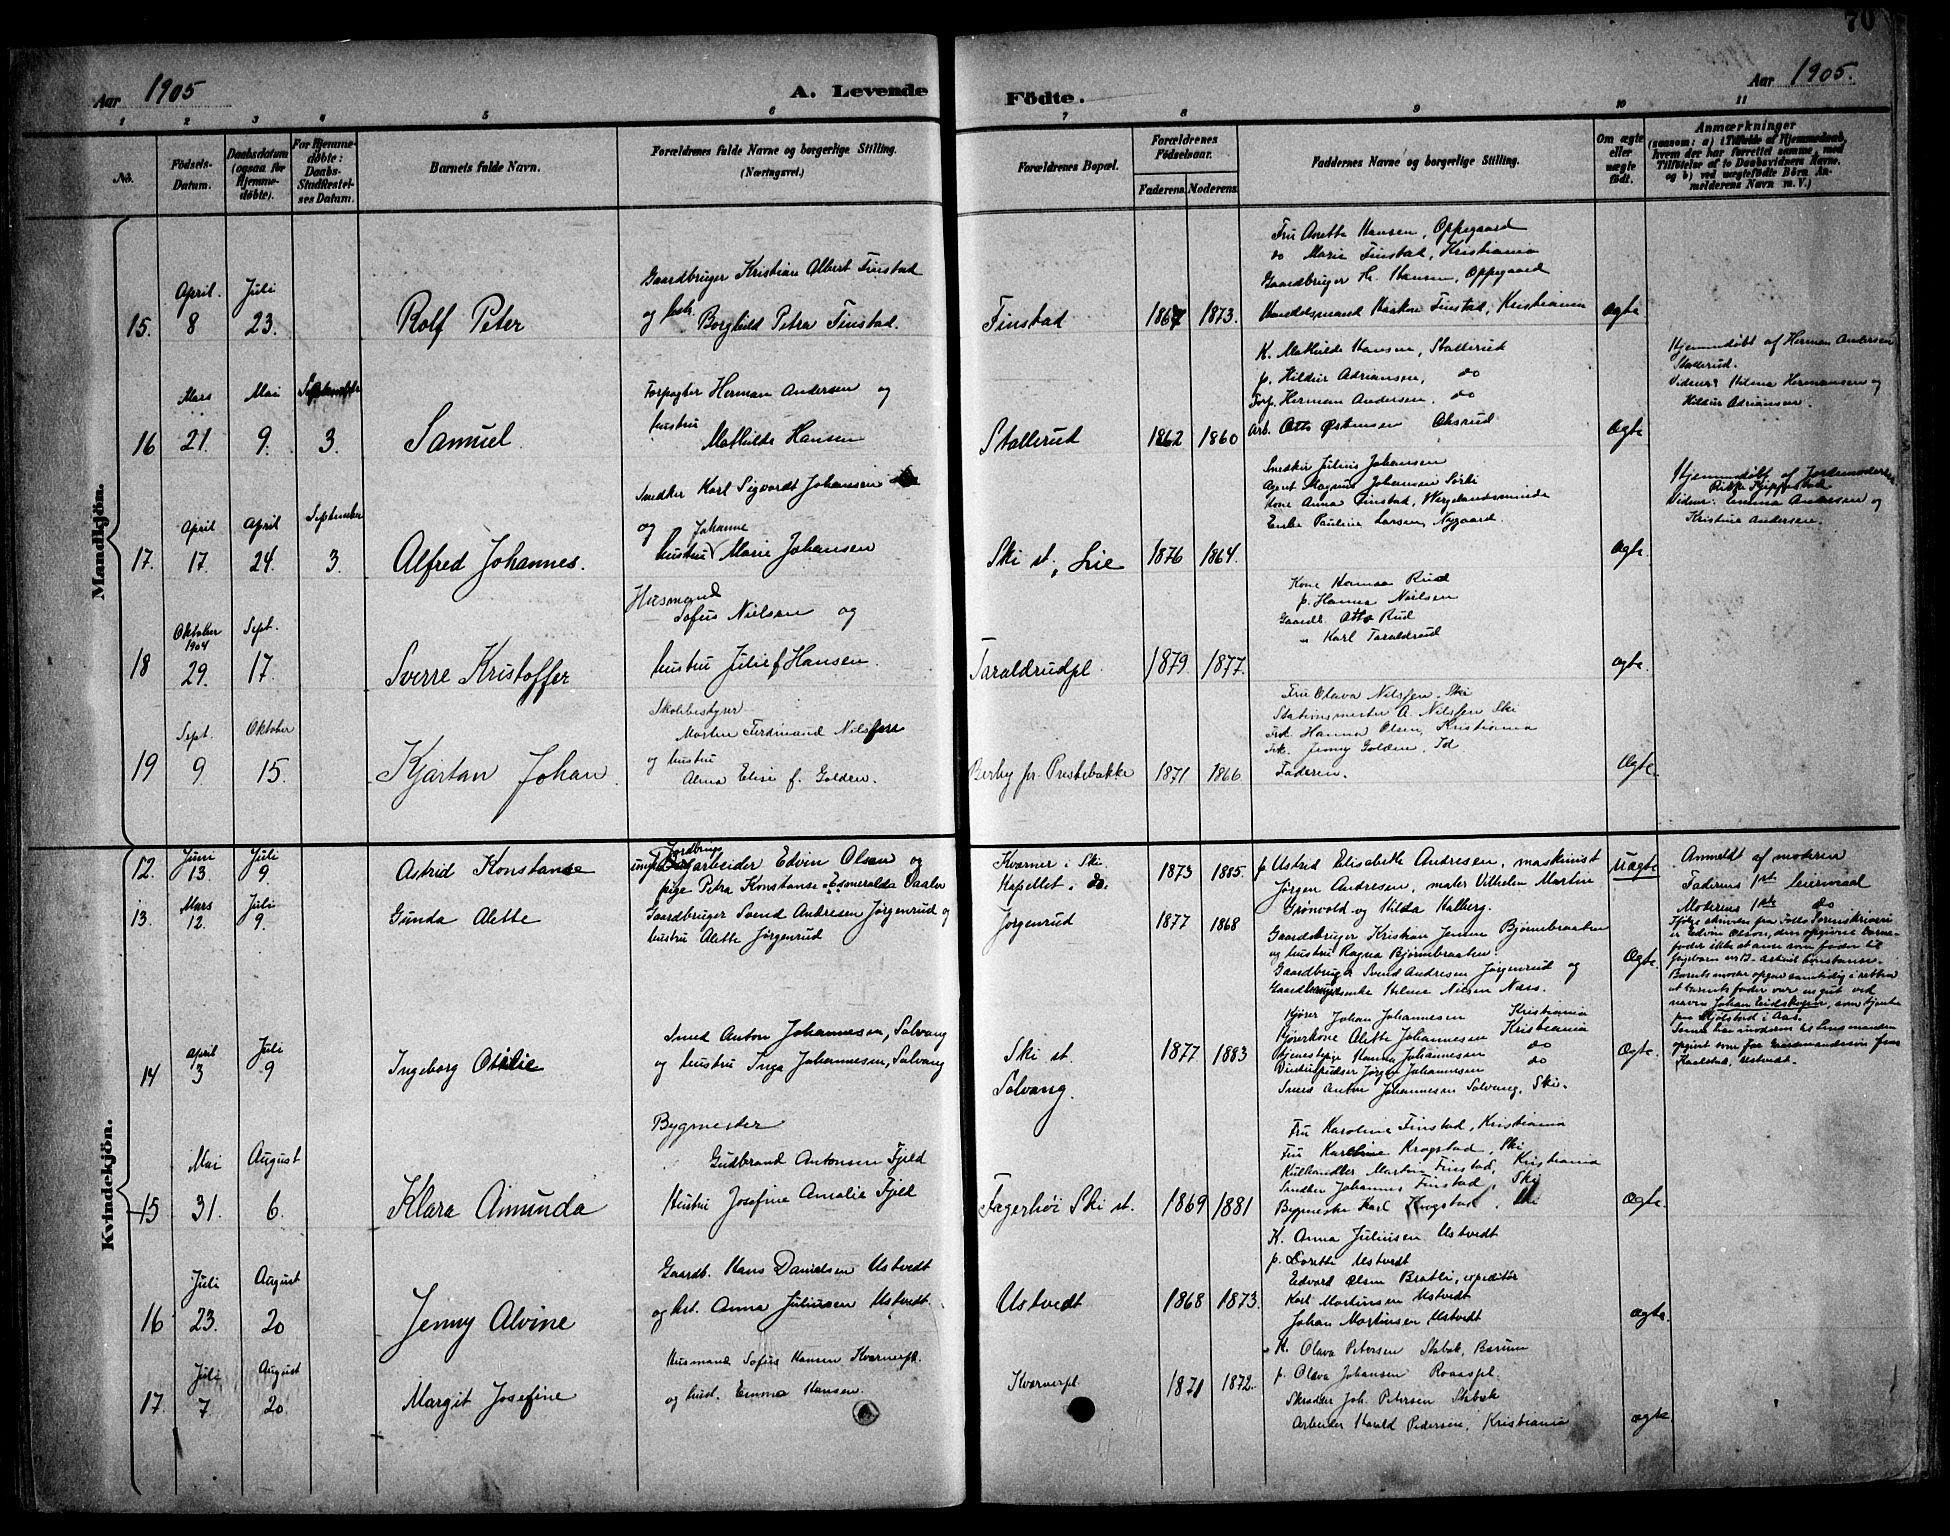 70
Aar 1905
A. Levende Födte.
Aar 1905.
1 2 3 4 5 6 7 8 9 10 11
No.
Födsels-Datum.
Daabsdatum (ogsaa for Hjemmedøbte).
For Hjemmedøbte: Daabs-Stadfæstelses Datum.
Barnets fulde Navn.
Forældrenes fulde Navne og borgerlige Stilling.
(Næringsvei.)
Forældrenes Bopæl.
Forældrenes Fødselsaar.
Faderens. Moderens.
Faddernes Navne og borgerlige Stilling.
Om ægte eller uægte født.
Anmærkninger
(saasom: a) i Tilfælde af Hjemmedaab, hvem der har forrettet samme, med Tilföielse af to Daabsvidners Navne, og b) ved uægtefödte Börn Anmelderens Navn m. V.)
Mandkjön.
15.
April 8
Juli 23.
Rolf Peter
Gaardbruger Kristian Albert Finstad
og hstr. Borghild Petra Finstad.
Finstad
1867 1873.
Fru Anette Hansen, Oppegaard
do Marie Finstad, Kristiania
Gaardbruger H. Hansen, Oppegaard
Handelsmand Haakon Finstad, Kristiania
Ægte
16
Mars 21.
Mai 9.
September 3.
Samuel
Forpagter Herman Andersen og
hustru
Mathilde Hansen
Stallerud
1862 1860
K. Mathilde Hansen, Stallerud
p. Hildur Adriansen, do
Forp. Herman Andersen, do
Arb. Otto Østensen Aksrud
Ægte
Hjemmdøbt af Herman Andersen
Stallerud.
Vidner: Hilma Hermansen og
Hildur Adriansen.
17.
April 17.
April 24.
September 3.
Alfred Johannes.
Snedker Karl Sigvardt Johansen
og Johanne
hustru Marie Johansen
Ski st., Lie
1876 1864.
Snedker Julius Johansen
Agent Magnus Johansen
Kone Anna Finstad, Wergelandsminde
Enke Pauline Larsen, Nygaard.
Ægte.
Hjemmdøbt af Jordemoderen
Vidner: Emma Andersen og
Kristine Andersen.
18
Oktober 1904 29.
Sept. 17.
Sverre Kristoffer
Husmand
Sofus Nielsen og
hustru Julie f. Hansen.
Taraldrudpl.
1879 1877.
Kone Hanna Rud
p. Hanna Nielsen
Gaardb. Otto Rud
" Karl Taraldrud
ægte.
19
Sept. 9.
Oktober 15.
Kjartan Johan.
Skolebestyrer
Morten Ferdinand Nilssen
og hustru
Alma Elise f. Golden.
Berby pr. Prestebakke
1871 1866
Fru Olava Nilssen. Ski
Stationsmester A. Nilssen Ski
Frk Hanna Olsen, Kristiania
Frk. Jenny Golden, Id
Faderen.
Ægte.
Kvindekjön.
12.
Juni 13.
Juli 9.
Astrid Konstanse
ungk. Jordbrugsarbeider Edvin Olsen og
pige Petra Konstanse Esmeralda Vaaler
Kværner i Ski
Kapellet i do.
1873 1885.
p Astrid Elisabeth Andresen, maskinist
Jørgen Andresen, maler Vilhelm Martin
Grønvold og Hilda Halberg.
Uægte
Anmeldt af moderen
Faderens 1ste leiermaal
Moderens 1ste do
13.
Mars 12.
Juli 9.
Gunda Alette
Gaardbruger Svend Andresen Jørgenrud og
hustru Alette Jørgenrud
Jørgenrud
1877 1868
Gaardbruger Kristian Jensen Bjørnebraaten
og hustru Ragna Bjørnebraaten.
Gaardbruger Svend Andresen Jørgenrud og
Gaardbrugerenke Helene Nilsen Næss.
Ægte.
14
April 3
Juli 9
Ingeborg Otilie
Smed Anton Johannesen, Solvang
og hustru Inga Johannesen, Solvang
Ski st.
Solvang.
1877 1883
Kjører Johan Johannesen Kristiania
Kjørerkone Alette Johannesen Kristiania
Tjenestepige Hanna Johannesen do
Vinduspudser Jørgen Johannesen do
Smed Anton Johannesen Solvang, Ski.
Ægte.
15
Mai 31.
August 6.
Klara Amunda
Bygmester
Gudbrand Antonsen Fjeld
Hustru Josefine Amalie Fjeld
Fagerhøi Ski st.
1869 1881
Fru Karoline Finstad, Kristiania
Fru Karoline Krogstad, Ski
Kulhandler Martin Finstad, Kristiania
Snedker Johannes Finstad, Ski
Bygmester Karl Krogstad, Ski
Ægte.
16
Juli 23.
August 20
Jenny Alvine
Gaardb. Hans Danielsen Ustvedt
og hst. Anna Juliusen Ustvedt.
Ustvedt
1868 1873.
K. Anna Juliusen Ustvedt
p. Dorette Ustvedt
Edvard Olsen Bratli, expeditør
Karl Mortinsen Ustvedt
Johan Mortinsen Ustvedt
ægte.
17.
Juli 7
August 20.
Margit Josefine
Husmand Sofus Hansen Kværnerpl.
og hust. Emma Hansen.
Kværnerpl.
1871 1872.
K. Olava Petersen Stabæk, Bærum
p. Olava Johansen Roaaspl.
Skrædder Joh. Petersen Stabæk
Arbeider Harald Pedersen, Kristiania
ægte.